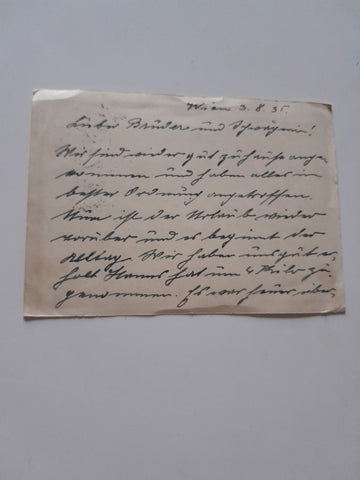 Wien 3.8.35
Lieber Bruder und Schwägerin!
Wir sind wieder gut zuhause ange-
kommen und haben alles in
bester Ordnung angetroffen.
Nun ist der Urlaub wieder
vorüber und es beginnt der
Alltag. Wir haben uns gut e-
holt Hanns hat um 4 Kilo zu-
genommen. Es war heuer über-